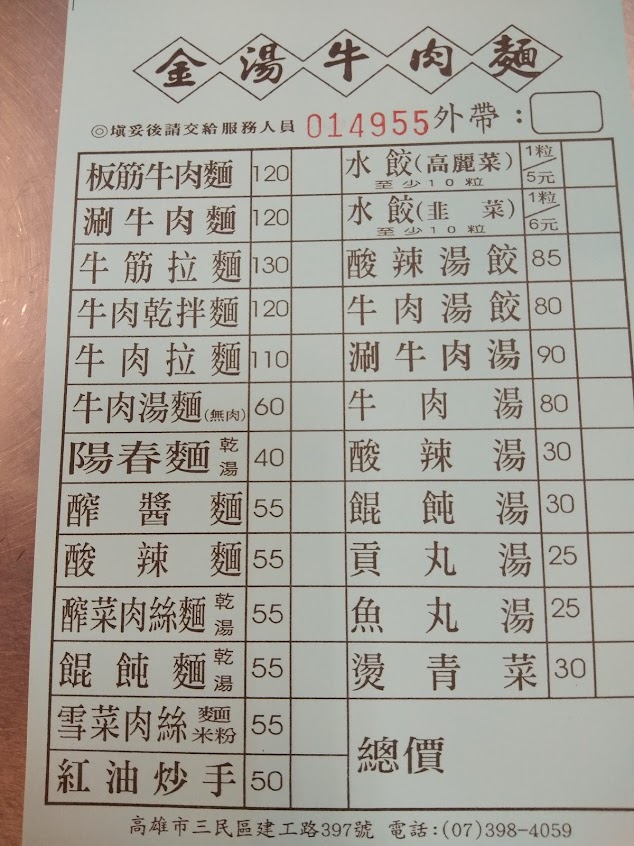 金湯牛肉麵
◎塡妥後請交給服務人員 014955 外帶：
板筋牛肉麵 120
涮牛肉麵 120
牛筋拉麵 130
牛肉乾拌麵 120
牛肉拉麵 110
牛肉湯麵(無肉) 60
陽春麵 乾 湯 40
醡醬麵 55
酸辣麵 55
醡菜肉絲麵 乾 湯 55
餛飩麵 乾 湯 55
雪菜肉絲 麵 米粉 55
紅油炒手 50
水餃(高麗菜) 1粒/5元
至少10粒
水餃(韭菜) 1粒/6元
至少10粒
酸辣湯餃 85
牛肉湯餃 80
涮牛肉湯 90
牛肉湯 80
酸辣湯 30
餛飩湯 30
貢丸湯 25
魚丸湯 25
燙青菜 30
總價
高雄市三民區建工路397號 電話:(07)398-4059